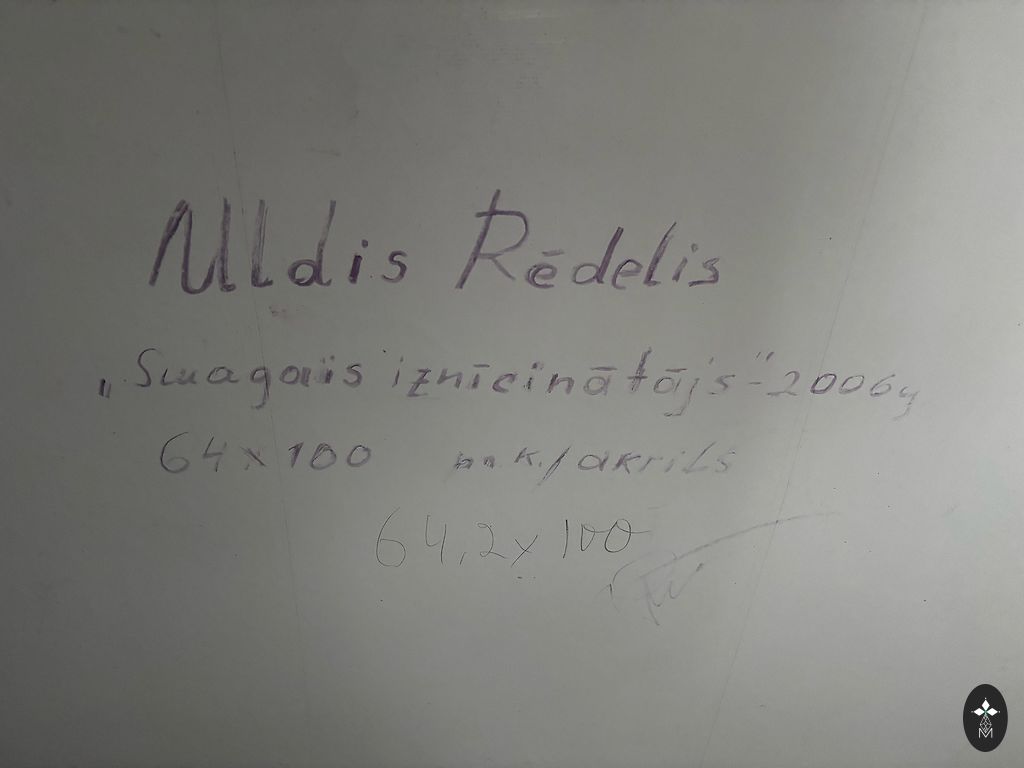 Uldis Rēdelis
„Smagais iznīcinātājs"-2006g
64x100 k./akrils
64,2x100